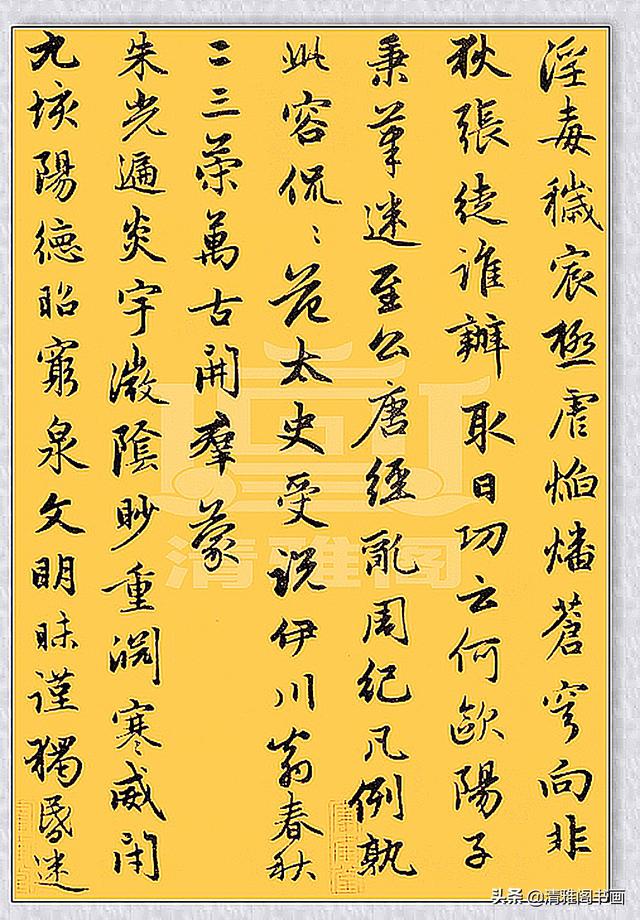 淫毒穢宸極虐焰燔蒼穹向非
狄張徒誰辦取日功云何歐陽子
秉筆迷至公唐經亂周紀凡例孰
此容侃〻范太史受説伊川翁春秋
二三策萬古開羣蒙
朱光遍炎宇微陰眇重淵寒威閉
九垓陽德昭窮泉文明昧謹獨昏迷
清雅阁
头条 @清雅阁书画